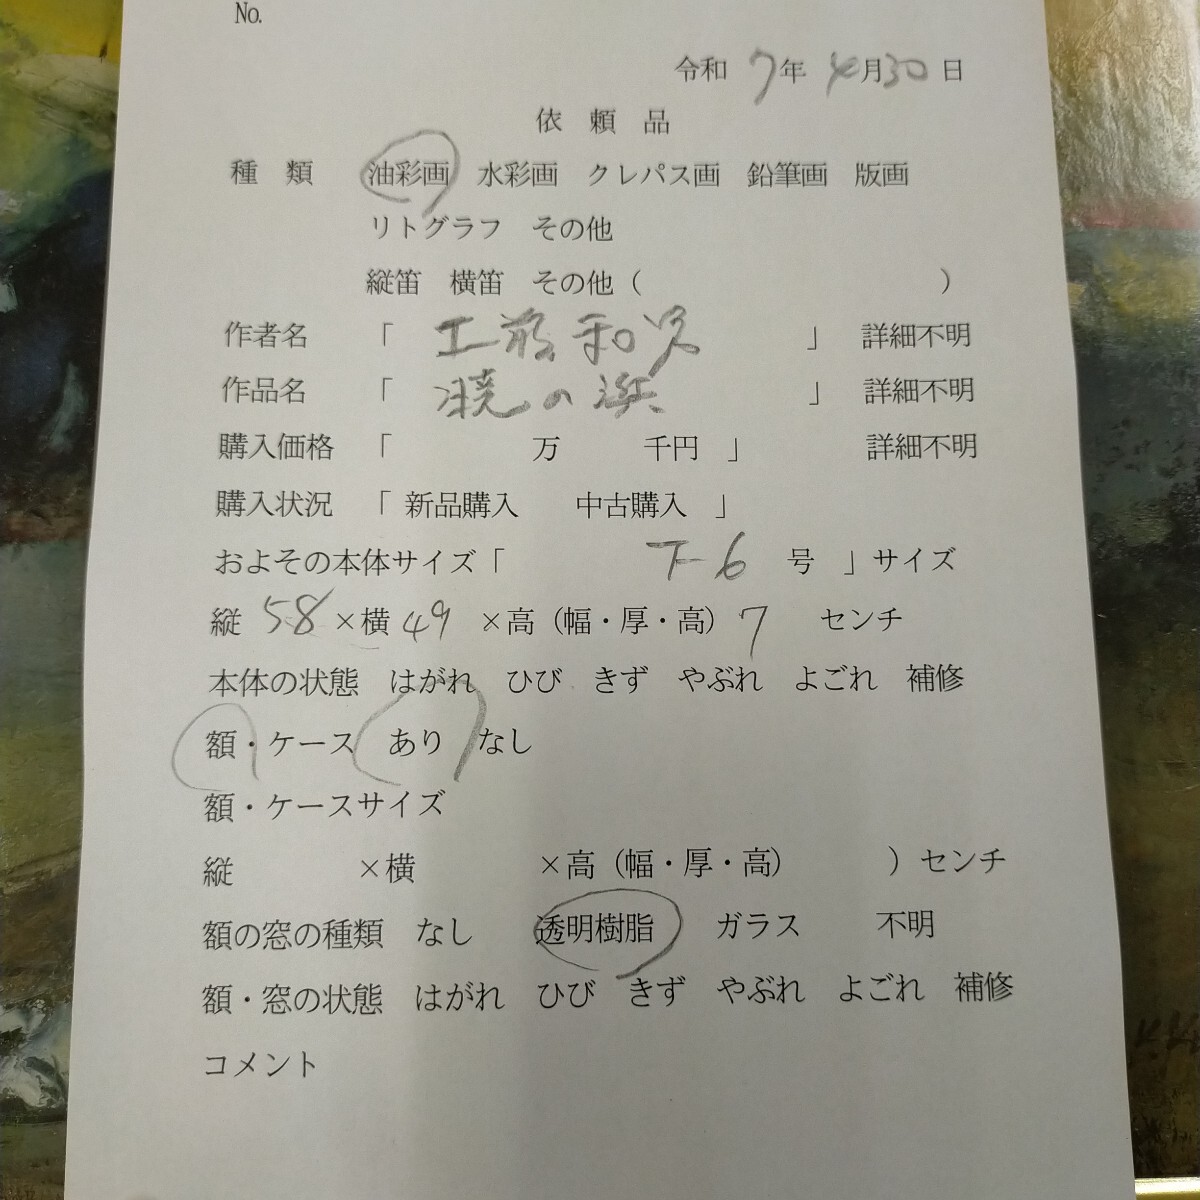 No.
令和 7年 4月30日
依頼品
種類 油彩画 水彩画 クレパス画 鉛筆画 版画
リトグラフ その他
縦笛 横笛 その他（ ）
作者名 「 工藤和男 」 詳細不明
作品名 「 暁の浜 」 詳細不明
購入価格 「 万 千円 」 詳細不明
購入状況 「 新品購入 中古購入 」
およその本体サイズ「 F-6 号 」サイズ
縦 58 ×横 49 ×高（幅・厚・高）7 センチ
本体の状態 はがれ ひび きず やぶれ よごれ 補修
額・ケース あり なし
額・ケースサイズ
縦 ×横 ×高（幅・厚・高） ）センチ
額の窓の種類 なし 透明樹脂 ガラス 不明
額・窓の状態 はがれ ひび きず やぶれ よごれ 補修
コメント